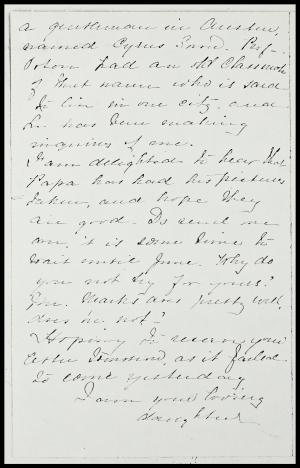 a gentleman in Austin,
named Cyrus Pond. Prof.
Potom had an old Classmate
of that name who is said
to live in our city, and
L. has been making
inquiries of me.
I am delighted to hear that
Papa has had his pictures
taken, and hope they
are good. Do send me
one, it is some time to
wait until June. Why do
you not try for yours?
Gen. Marks does pretty work
does he not?
Hoping to receive your
letter tomorrow, as it failed
to come yesterday
I am your loving
daughter